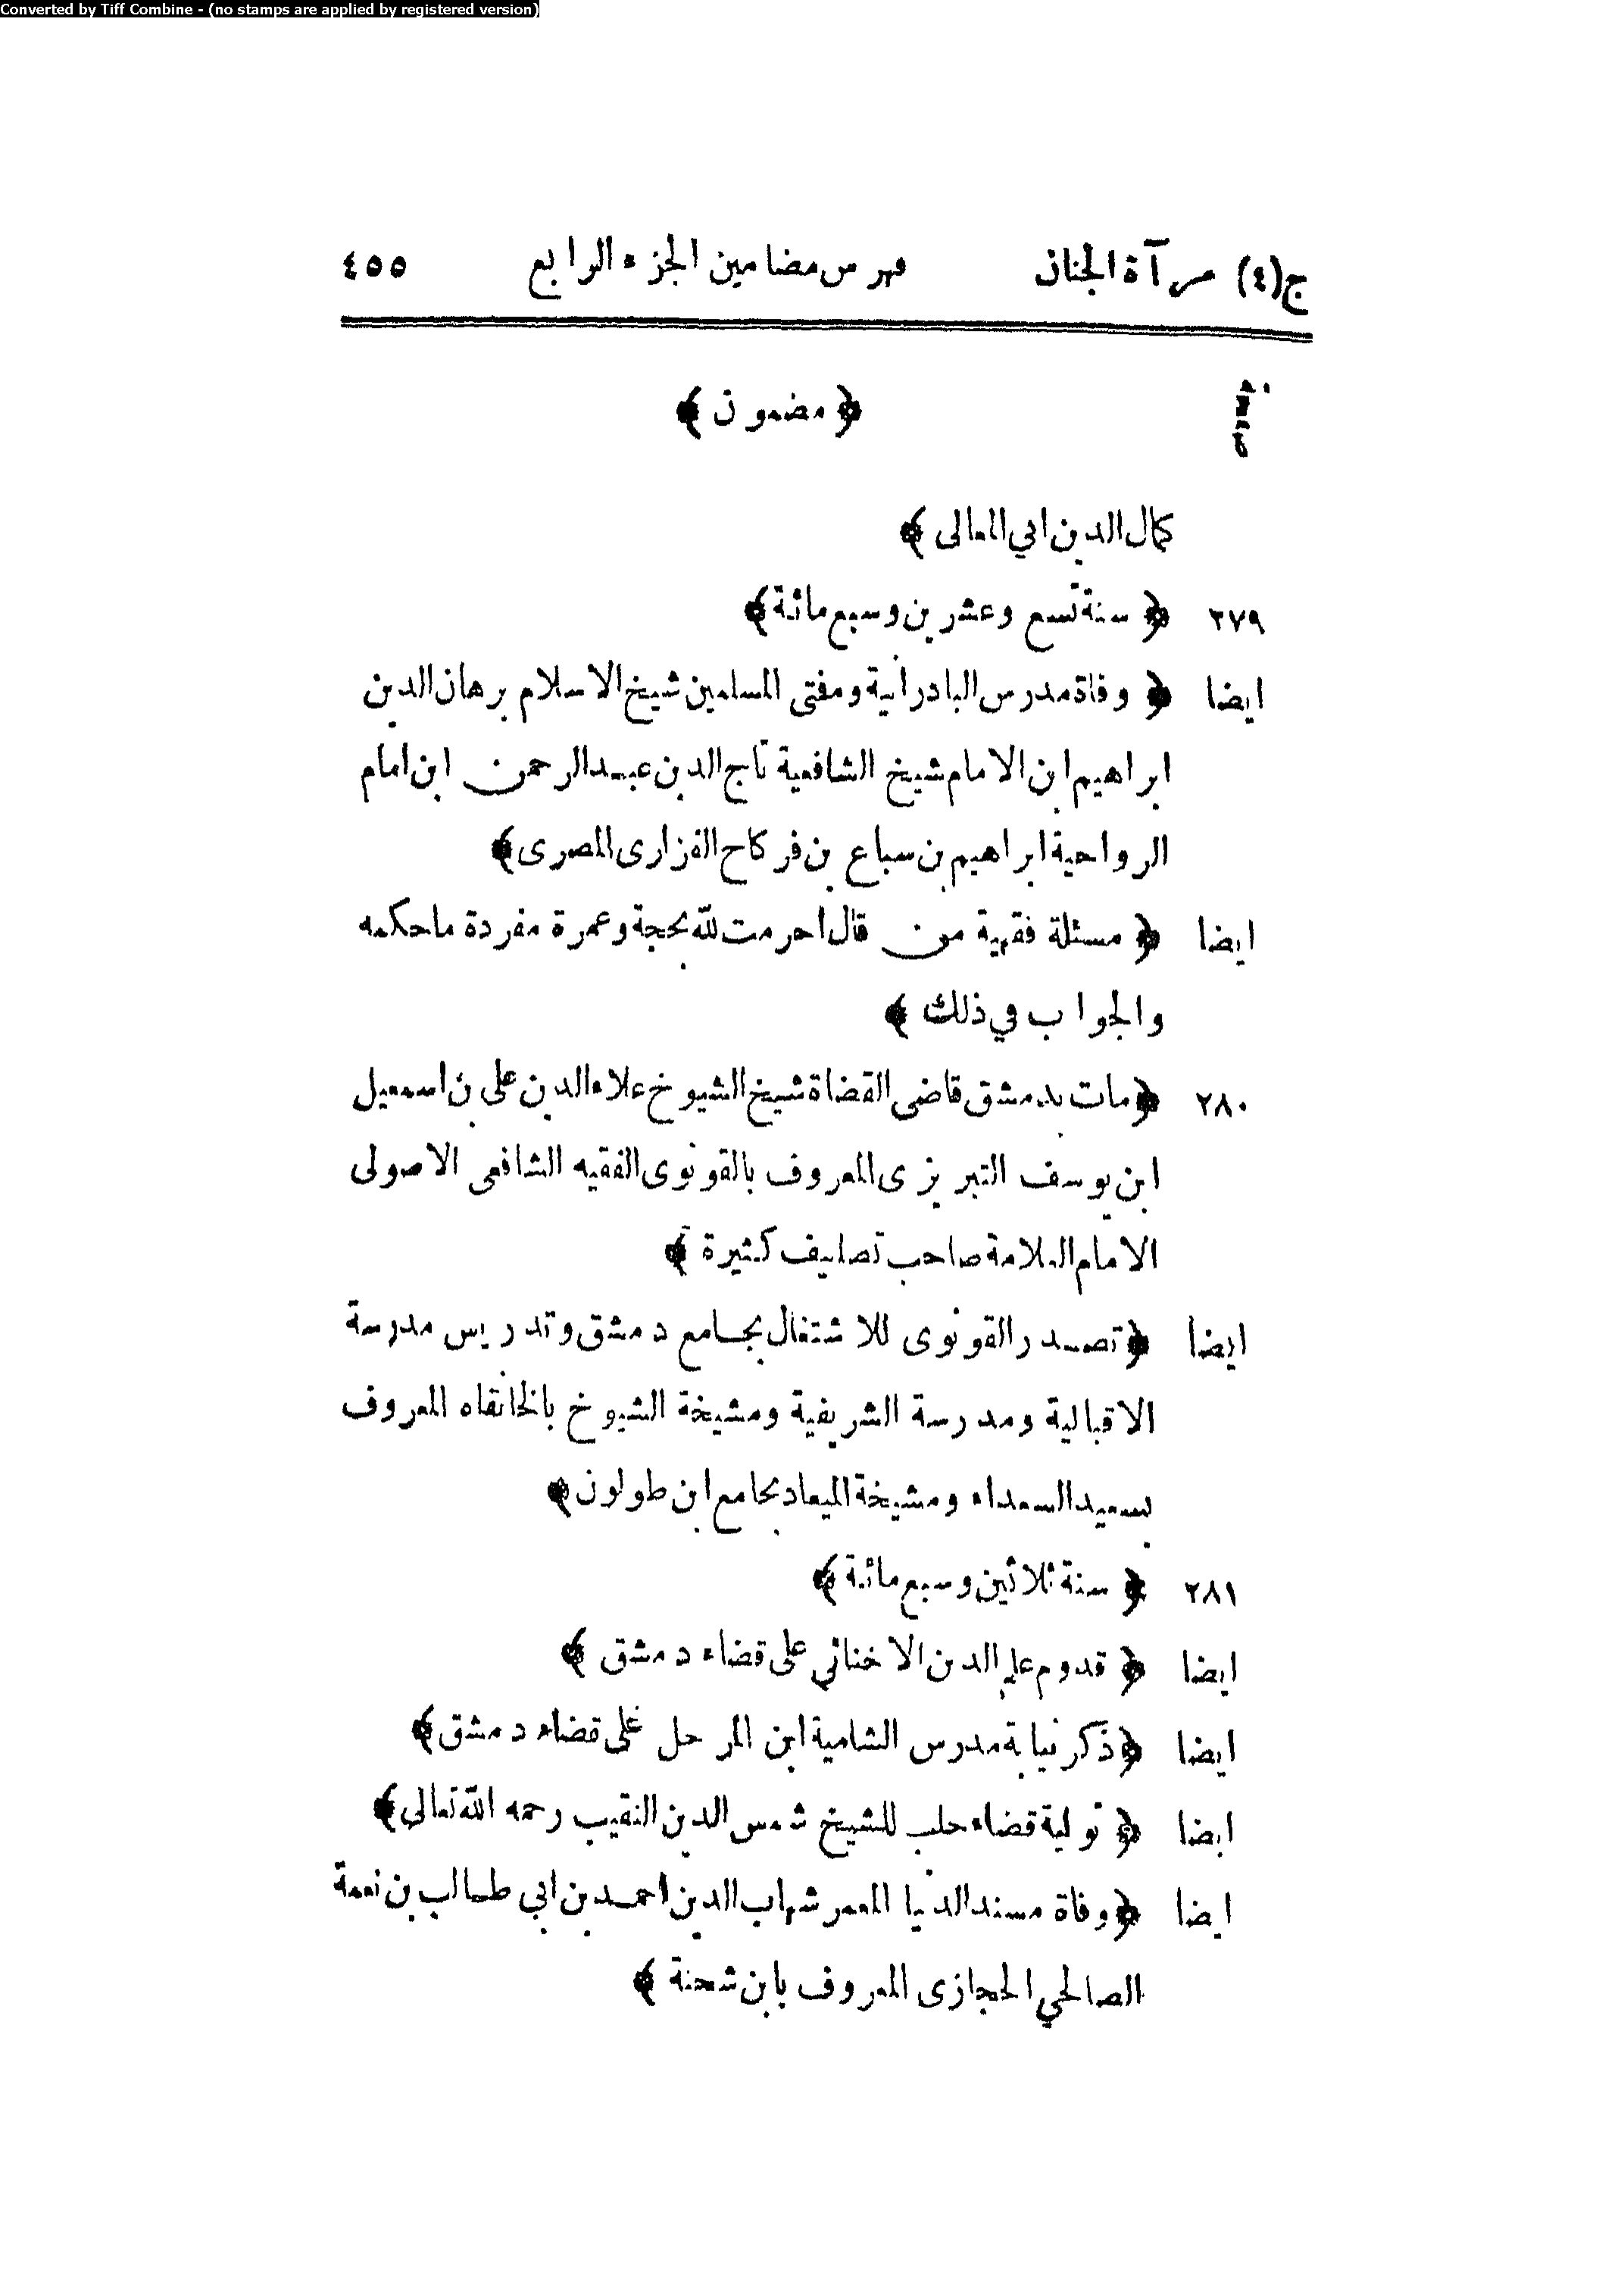 Converted by Tiff Combine - (no stamps are applied by registered version)
ج(٤) مرآة الجنان فهرس مضامين الجزء الرابع ٤٥٥
صفحة ﴿ مضمون ﴾
كمال الدين ابي المعالى ﴾
٢٧٩ ﴿ سنة تسع وعشرين وسبع مائة ﴾
ايضا ﴿ وفاة مدرس البادرائية ومفتى المسلمين شيخ الاسلام برهان الدين
ابراهيم ابن الامام شيخ الشافعية تاج الدين عبد الرحمن ابن امام
الرواحية ابراهيم بن سباع بن فركاح الفزارى المصرى ﴾
ايضا ﴿ مسئلة فقهية من قال احرمت لله بحجة وعمرة مفردة ما حكمه
والجواب في ذلك ﴾
٢٨٠ ﴿ مات بدمشق قاضى القضاة شيخ الشيوخ علاء الدين على بن اسمعيل
ابن يوسف التبريزى المعروف بالقونوى الفقيه الشافعى الاصولى
الامام العلامة صاحب تصانيف كثيرة ﴾
ايضا ﴿ تصدر القونوى للاشتغال بجامع دمشق وتدريس مدرسة
الاقبالية ومدرسة الشريفية ومشيخة الشيوخ بالخانقاه المعروف
بسعيد السعداء ومشيخة الميعاد بجامع ابن طولون ﴾
٢٨١ ﴿ سنة ثلاثين وسبع مائة ﴾
ايضا ﴿ قدوم علم الدين الاخنائي على قضاء دمشق ﴾
ايضا ﴿ ذكر نيابة مدرس الشامية ابن المرحل على قضاء دمشق ﴾
ايضا ﴿ تولية قضاء حلب للشيخ شمس الدين النقيب رحمه الله تعالى ﴾
ايضا ﴿ وفاة مسند الدنيا المعمر شهاب الدين احمد بن ابي طالب بن نعمة
الصالحي الحجازى المعروف بابن شحنة ﴾